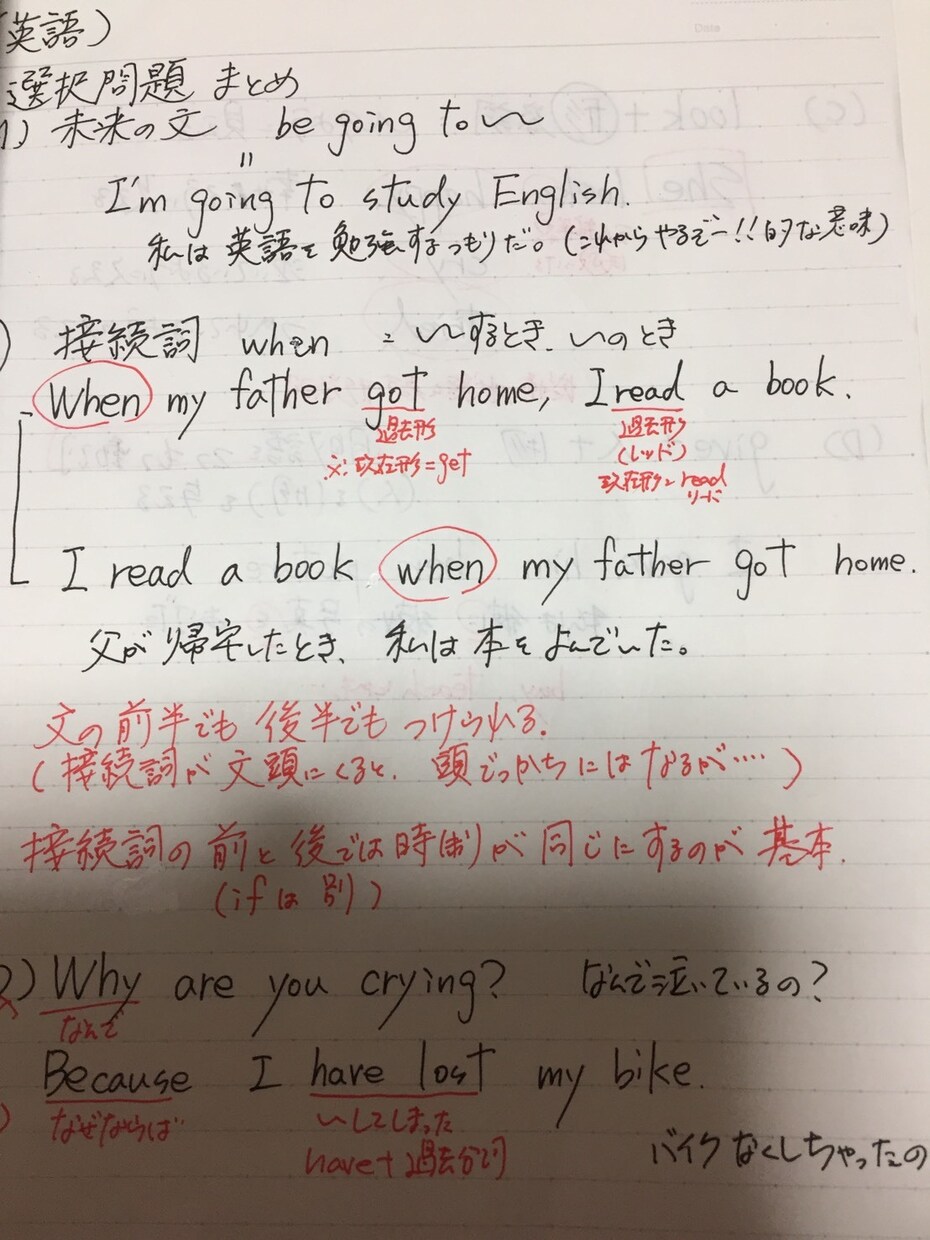 (英語)
選択問題 まとめ
1) 未来の文 be going to 〜
=
I'm going to study English.
私は英語を勉強するつもりだ。(これからやるぞー!!的な意味)
) 接続詞 when = 〜するとき、〜のとき
When my father got home, I read a book.
過去形 過去形
(レッド)
※:現在形=get 現在形=read
リード
I read a book when my father got home.
父が帰宅したとき、私は本をよんでいた。
文の前半でも後半でもつけられる.
(接続詞が文頭にくると、頭でっかちにはなるが‥‥)
接続詞の前と後では時(制)が同じにするのが基本.
(ifは別)
2) Why are you crying? なんで泣いているの?
なんで
Because I have lost my bike.
なぜならば 〜してしまった
have+過去分詞
バイクなくしちゃったの